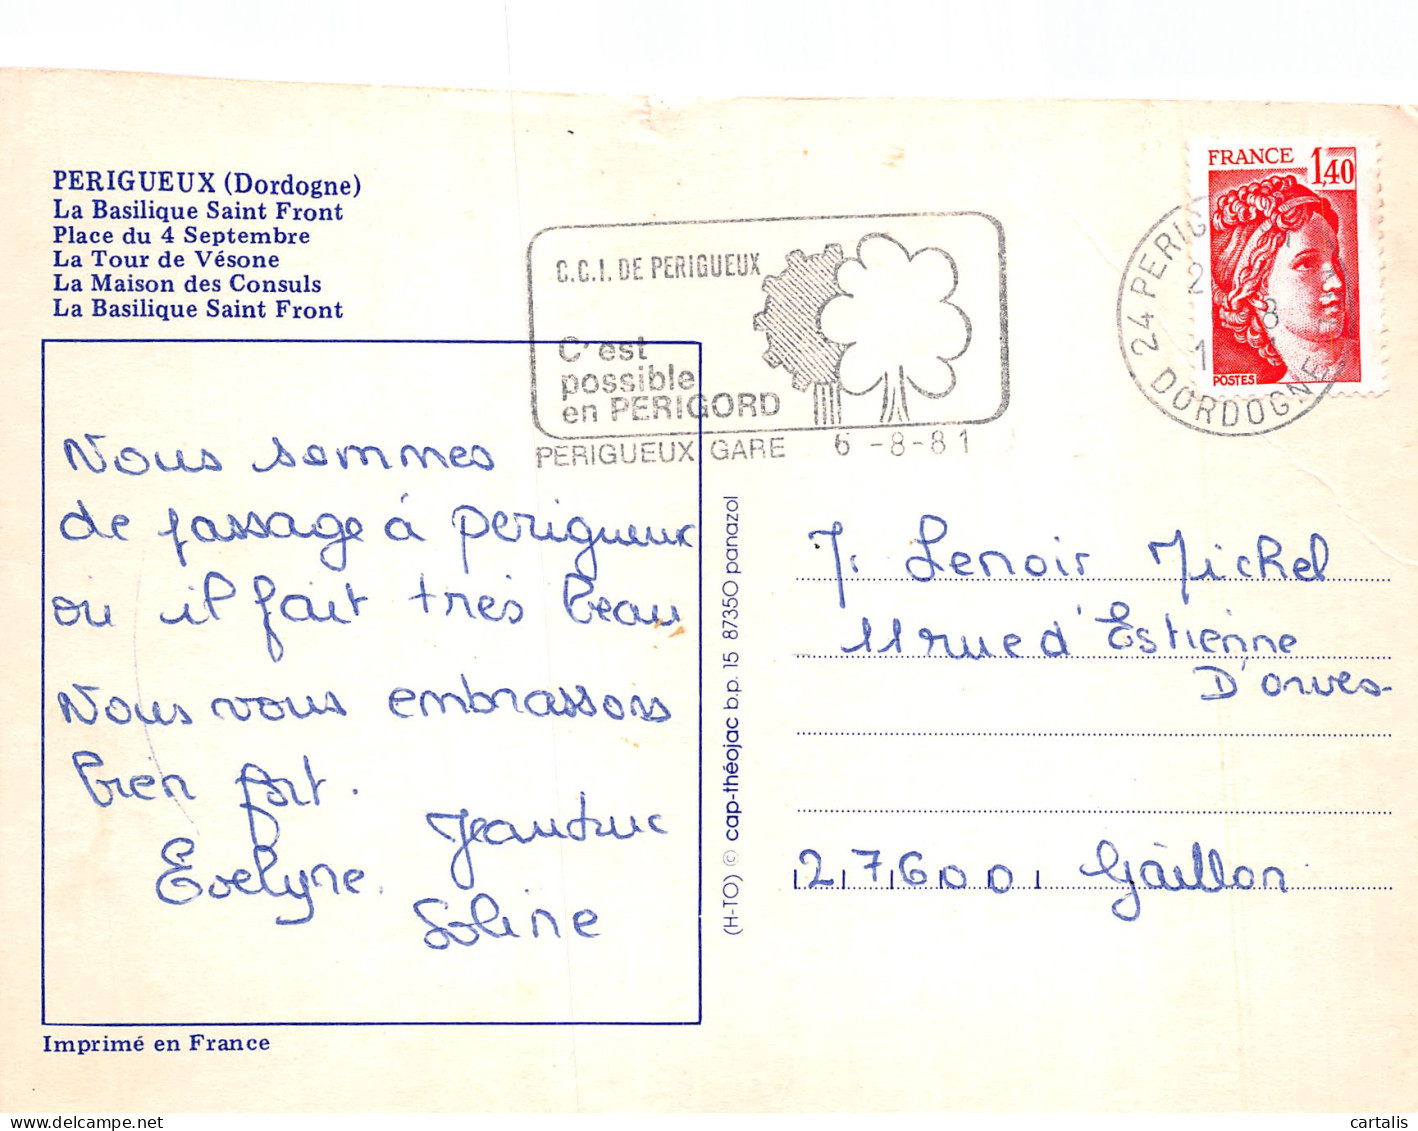 PERIGUEUX (Dordogne)
La Basilique Saint Front
Place du 4 Septembre
La Tour de Vésone
La Maison des Consuls
La Basilique Saint Front
C.C.I. DE PERIGUEUX
C'est
possible
en PERIGORD
PERIGUEUX GARE 6-8-81
FRANCE 1,40
POSTES
24 PERIG
DORDOGNE
Nous sommes
de passage à perigueux
ou il fait très beau
Nous vous embrassons
bien fort.
Evelyne.
Soline
(H-TO) © cap-théojac b.p. 15 87350 panazol
Lenoir Michel
11 rue d'Estienne
D'orves-
27600 Gaillon
Imprimé en France
cartalis